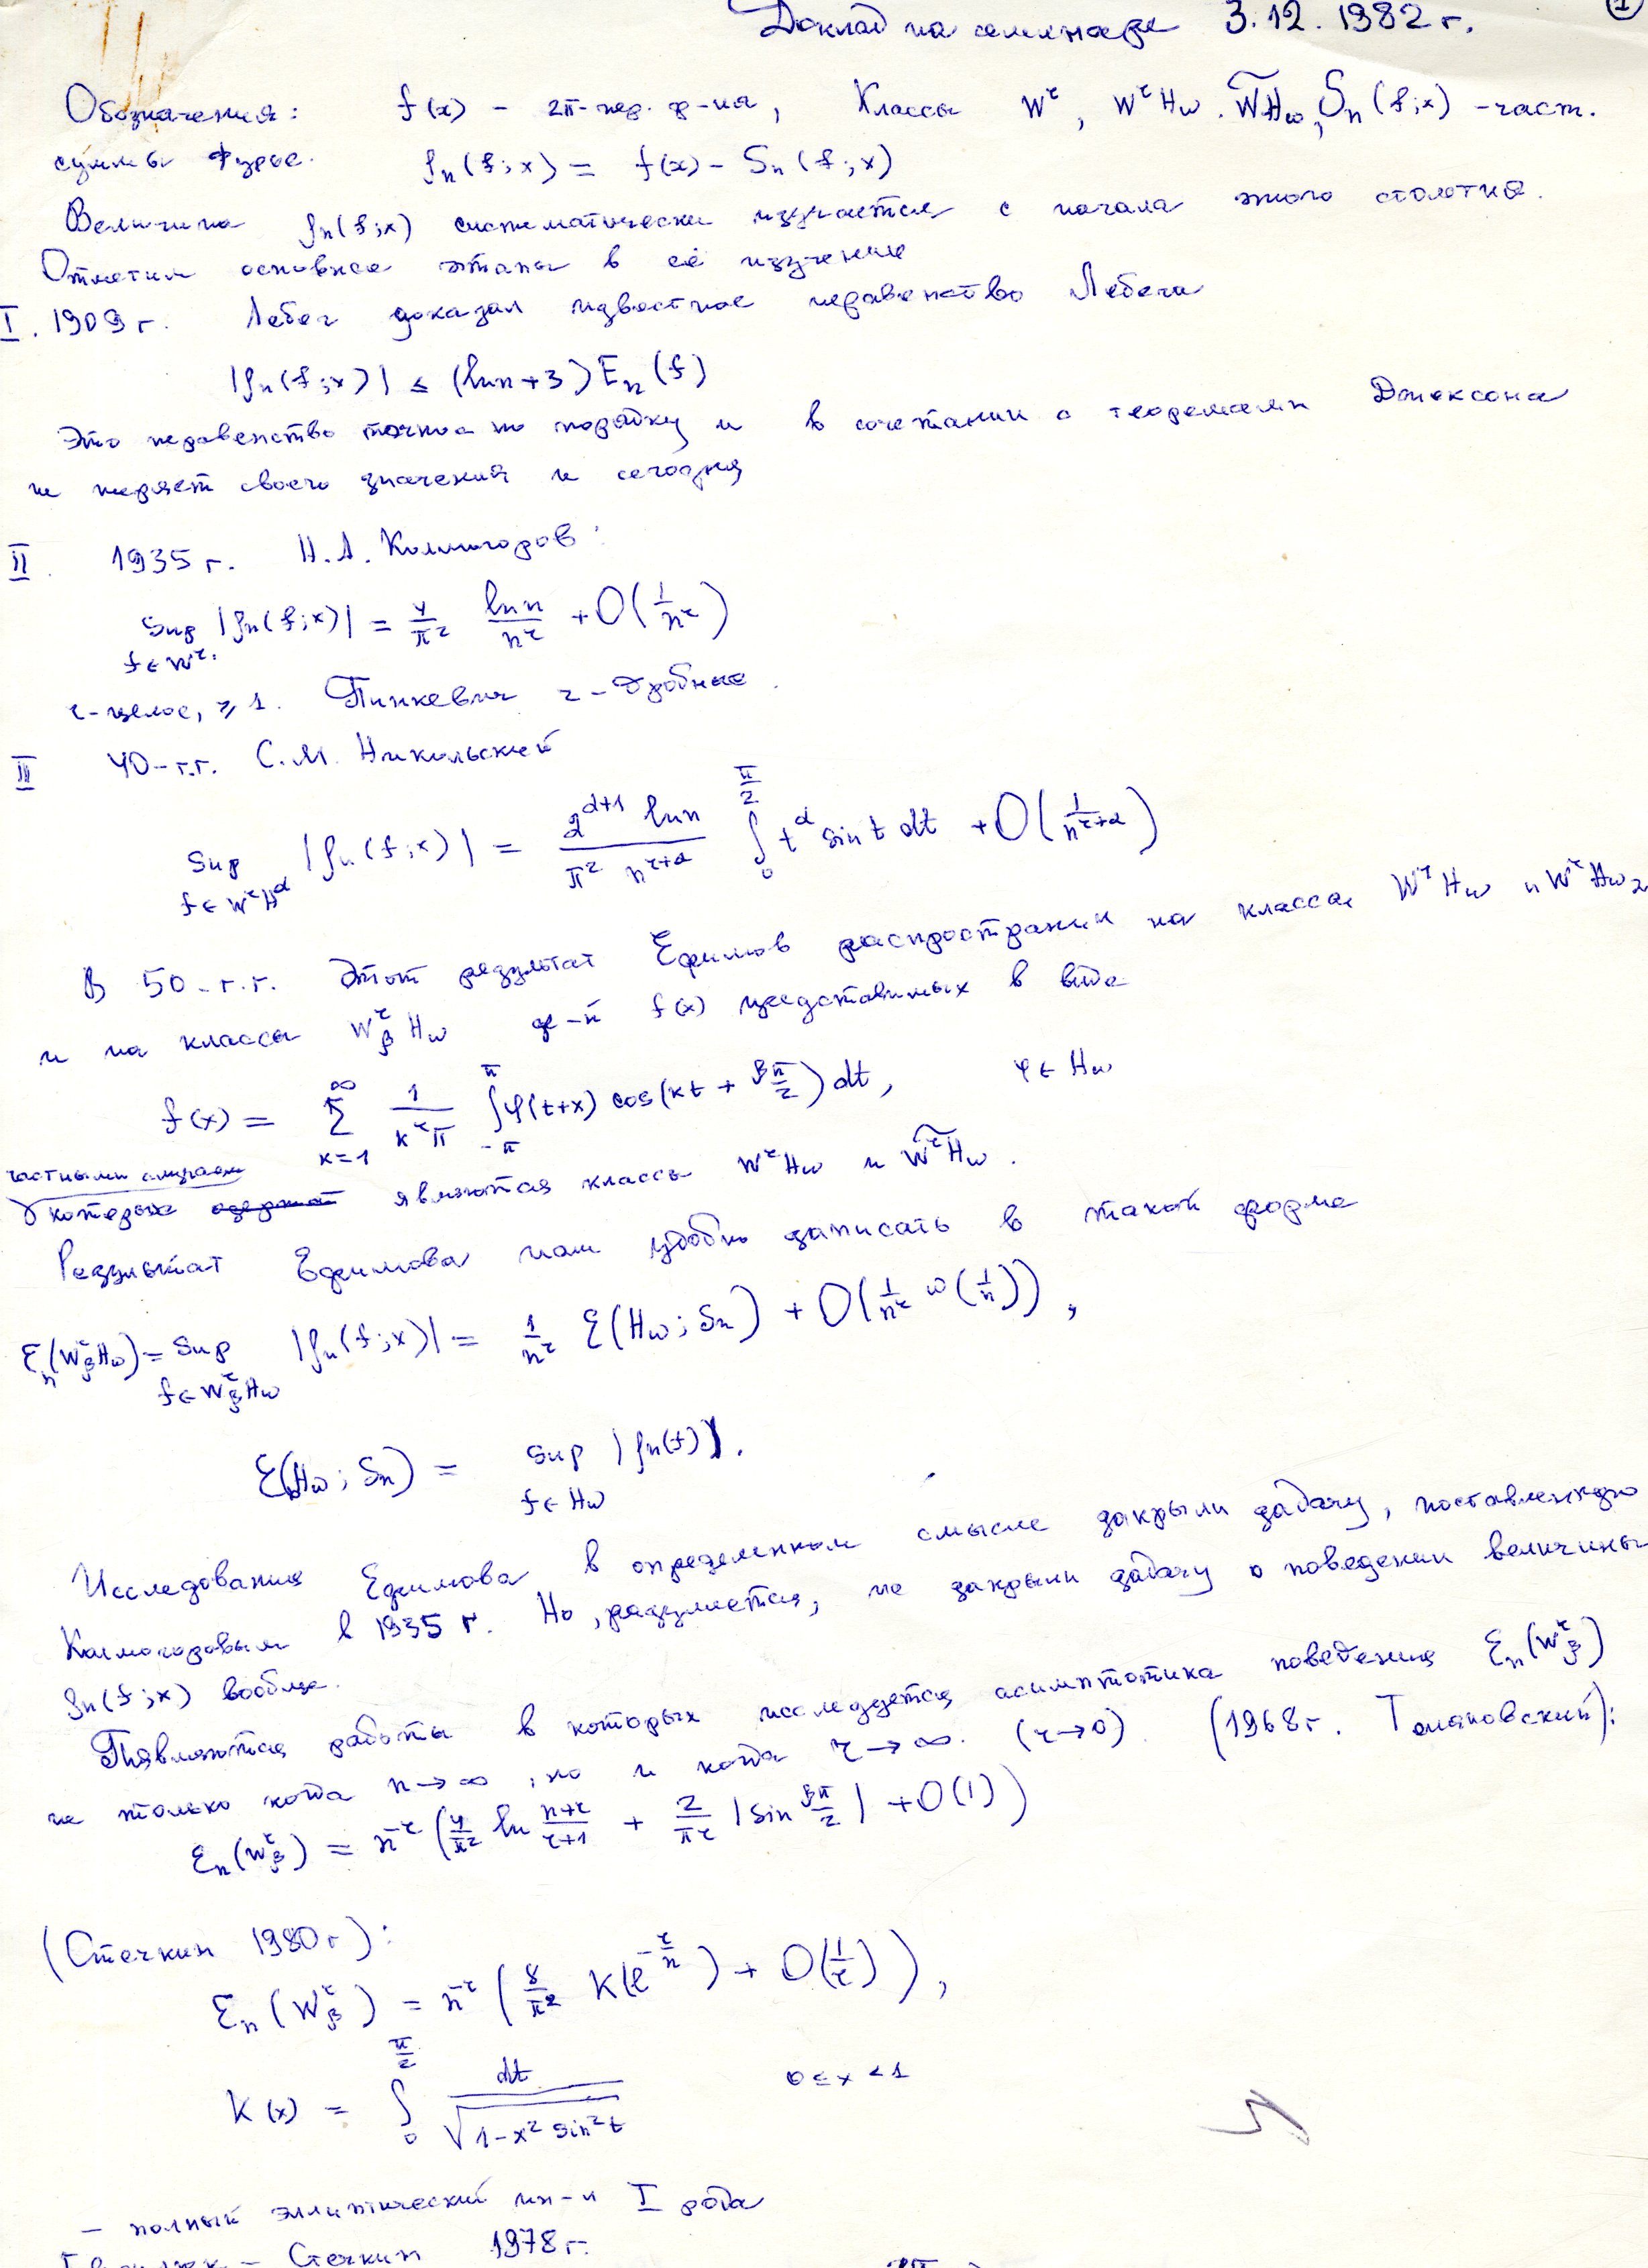 Доклад на семинаре 3.12.1982 г. ①
Обозначения: f(x) – 2π-пер. ф-ия, Классы W^r, W^r H_ω, \widetilde{W} H_ω, S_n(f;x) – част.
суммы Фурье. ρ_n(f;x) = f(x) – S_n(f;x)
Величина ρ_n(f;x) систематически изучается с начала этого столетия.
Отметим основные этапы в её изучении
I. 1909 г. Лебег доказал известное неравенство Лебега
|ρ_n(f;x)| ≤ (ln n + 3) E_n(f)
Это неравенство точное по порядку и в сочетании с теоремами Джексона
не теряет своего значения и сегодня
II. 1935 г. Н.А. Колмогоров:
sup_{f∈W^r} |ρ_n(f;x)| = 4/π² ln n/n^r + O(1/n^r)
r – целое, ≥ 1. Пинкевич r – дробные.
III 40-г.г. С.М. Никольский
sup_{f∈W^r H^α} |ρ_n(f;x)| = 2^{α+1} ln n/(π² n^{r+α}) ∫_0^{π/2} t^α sin t dt + O(1/n^{r+α})
В 50-г.г. Этот результат Ефимов распространил на классы W^r H_ω и W^r H_{ω_2}
и на классы W^r_β H_ω ф-й f(x) представимых в виде
f(x) = ∑_{k=1}^∞ 1/(k^r π) ∫_{-π}^{π} φ(t+x) cos(kt + βπ/2) dt, φ ∈ H_ω
частными случаями
которых являются классы W^r H_ω и \widetilde{W^r} H_ω.
Результат Ефимова нам удобно записать в такой форме
ℰ_n(W^r_β H_ω) = sup_{f∈W^r_β H_ω} |ρ_n(f;x)| = 1/n^r ℰ(H_ω; S_n) + O(1/n^r ω(1/n)),
ℰ(H_ω; S_n) = sup_{f∈H_ω} |ρ_n(f)|.
Исследования Ефимова в определенном смысле закрыли задачу, поставленную
Колмогоровым в 1935 г. Но, разумеется, не закрыли задачу о поведении величины
ρ_n(f;x) вообще.
Появляются работы в которых исследуется асимптотика поведения ℰ_n(W^r_β)
не только когда n → ∞, но и когда r → ∞. (r → 0). (1968 г. Теляковский):
ℰ_n(W^r_β) = n^{-r} (4/π² ln (n+r)/(r+1) + 2/(πr) |sin βπ/2| + O(1))
(Стечкин 1980 г):
ℰ_n(W^r_β) = n^{-r} (8/π² K(e^{-r/n}) + O(1/r)),
K(x) = ∫_0^{π/2} dt/√(1 – x² sin² t) 0 ≤ x < 1
– полный эллиптический ин-л I рода
– Стечкин 1978 г.